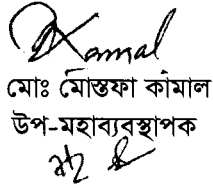 Kamal
মোঃ মোস্তফা কামাল
উপ-মহাব্যবস্থাপক